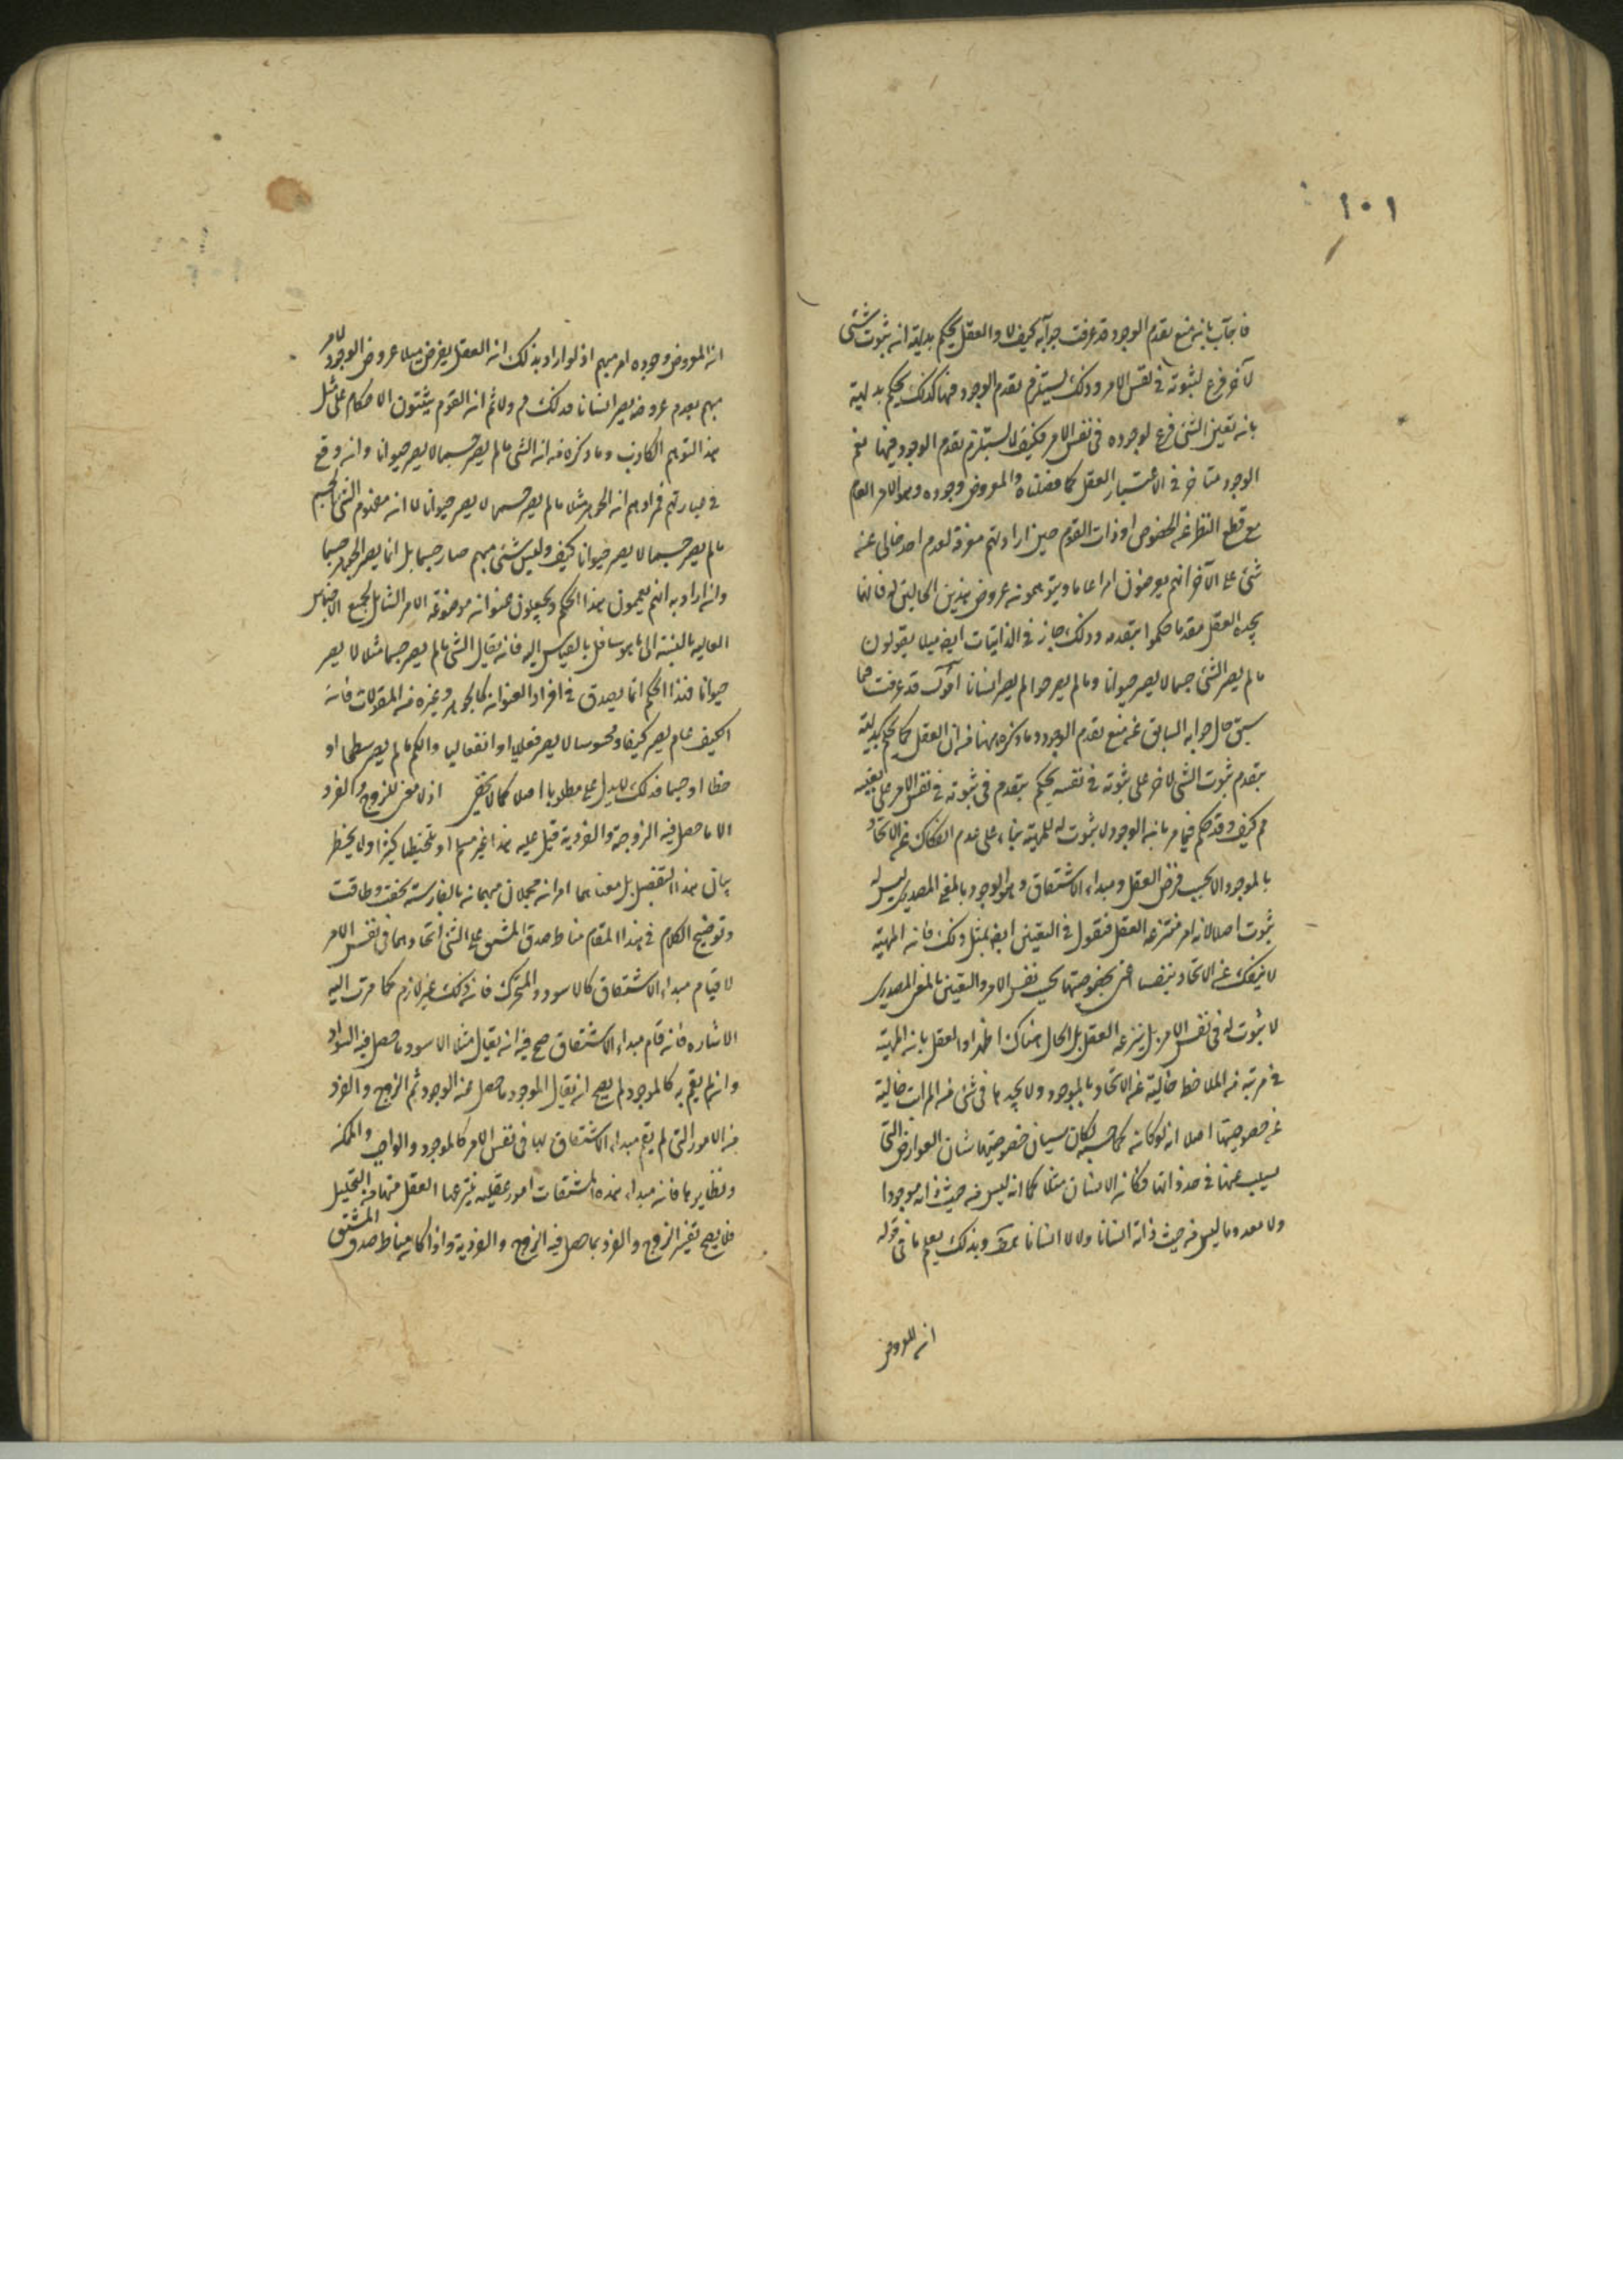 ١٠١
فاجاب بانه منع تقدم الوجود قد عرفت جوابه كيف لا والعقل يحكم بداهة ان ثبوت شئ
لآخر فرع لثبوته فى نفس الامر وذلك يستلزم تقدم الوجود فهنا كذلك يحكم بداهة
بان تعين الشئ فرع لوجوده فى نفس الامر فكيف لا يستلزم تقدم الوجود فيهما نعم
الوجود متأخر فى الاعتبار العقل كما فصلناه والمعروض وجوده وهو الامر العام
مع قطع النظر عن الخصوص او ذات القوم حين ارادتهم معرفة تقدم احد حالى عنه
شئ على الآخر انهم يعرضون امرا عاما ويتوهمونه عروض هذين الحالين له فايهما
يجده العقل مقدما حكموا بتقدمه وذلك جاز فى الذاتيات ايضا مثلا يقولون
ما لم يصر الشئ جسما لا يصر حيوانا وما لم يصر حيوانا لم يصر انسانا اقول قد عرفت مما
سبق حال جوابه السابق عن منع تقدم الوجود وما ذكره ههنا من ان العقل كما يحكم بداهة
بتقدم ثبوت الشئ لآخر على ثبوته فى نفسه يحكم بتقدم فى ثبوته فى نفس الامر على تعينه
م كيف وقد حكم فيما مر بانه الوجود لا ثبوت له للمهية بناء على عدم انفكاك عن الاتحاد
بالموجود الا بحسب فرض العقل ومبداء الاشتقاق وهو الوجود بالمعنى المصدرى ليس له
ثبوت اصلا لانه امر منتزعه العقل فنقول فى التعين ايضا بمثل ذلك فان المهية
لا ينفك عن الاتحاد بتعينها اعنى بخصوصيتها بحسب نفس الامر والتعين بالمعنى المصدرى
لا ثبوت له فى نفس الامر بل ينتزعه العقل بل الحال هناك اظهر اذ العقل بانه المهية
فى مرتبة من الملاحظ خالية عن الاتحاد بالموجود ولا يجدها فى شئ من المراتب خالية
عن خصوصيتها اصلا اذ لو كانت كما حسبه لكان سيان خصوصيتها شان العوارض التى
يسلب عنها فى حد ذاتها فكان الانسان مثلا كما انه ليس من حيث ذاته موجودا
ولا معدوما ليس من حيث ذاته انسانا ولا لا انسانا وبذلك يعلم ما فى قوله
ان المعروض
ان المعروض وجوده امر مبهم اذ لو اراد بذلك ان العقل يفرض مثلا عروض الوجود لامر
مبهم بعدم عروضه يصر انسانا فذلك م ولا ثم ان القوم يثبتون الاحكام على مثل
هذا التوهم الكاذب وما ذكره من ان الشئ ما لم يصر جسما لا يصر حيوانا وانه وقع
فى عبارتهم فمرادهم ان الجوهر مثلا ما لم يصر جسما لا يصر حيوانا لا ان مفهوم الشئ المبهم
ما لم يصر جسما لا يصر حيوانا كيف وليس شئ مبهم صار جسما بل انما يصر الجوهر جسما
وان اراد به انهم يعممون هذا الحكم ويجعلون عنوان موضوعه الامر الشامل لجميع الاجناس
العاليه بالنسبة الى ما هو سافل بالقياس اليه فانه يقال الشئ ما لم يصر جسما مثلا لا يصر
حيوانا فهذا الحكم انما يصدق فى افراد العنوان كالجوهر وغيره من المقولات فانه
الكيف ما لم يصر كيفا محسوسا لا يصر فعليا او انفعاليا والكم ما لم يصر سطحا او
خطا او جسما فذلك لا يدل على مطلوبه اصلا كما لا يخفى اذ لا معنى للزوج والفرد
الا ما حصل فيه الزوجية والفردية قيل عليه هذا غير مسلم او نلحظها كثيرا ولا يخطر
ببالى هذا التفصيل بل معناهما امران مجملان مبهمان بالفارسية جفت وطاقت
وتوضيح الكلام فى هذا المقام مناط صدق المشتق على الشئ اتحادهما فى نفس الامر
لا قيام مبداء الاشتقاق كالاسود والمتحرك فان ذلك غير لازم كما مرت اليه
الاشاره فان قام مبداء الاشتقاق صح فيه ان يقال مثلا الاسود ما حصل فيه السواد
وان لم يقم به كالموجود لم يصح ان يقال الموجود ما حصل عنه الوجود ثم الزوج والفرد
من الامور التى لم يقم مبداء الاشتقاق لها فى نفس الامر كالموجود والواجب والممكن
ونظايرها فان مبداء هذه المشتقات امور عقلية ينتزعها العقل منها فى التحليل
فلا يصح تفسير الزوج والفرد بما حصل فيه الزوج والفردية واذا كان مناط صدق المشتق